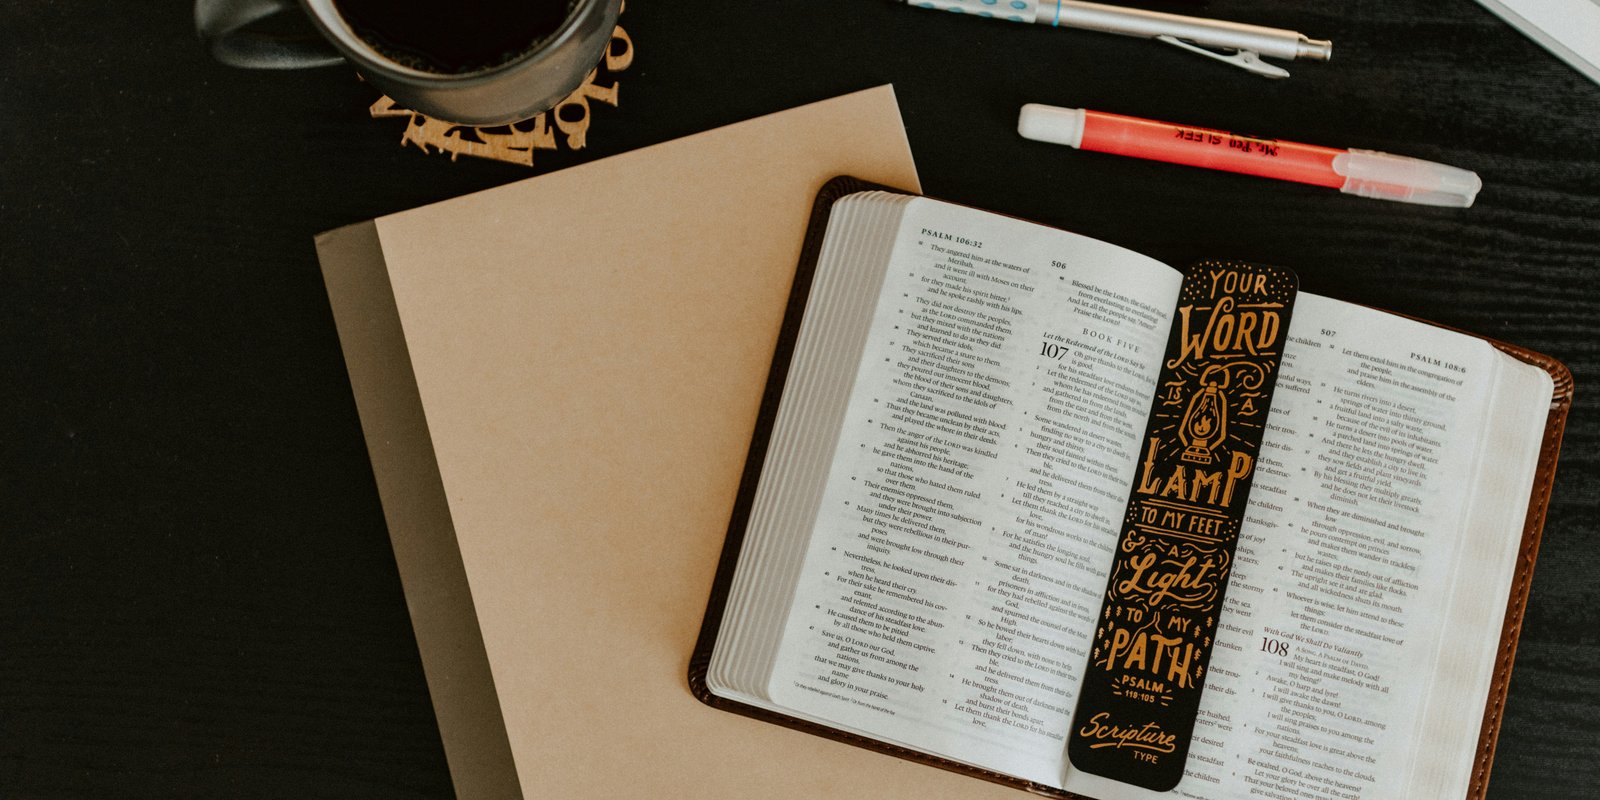 Mr. Pen SLEEK
PSALM 106:32
506
They angered him at the waters of
Meribah,
and it went ill with Moses on their
account,
for they made his spirit bitter,
and he spoke rashly with his lips.
They did not destroy the peoples,
as the LORD commanded them,
but they mixed with the nations
and learned to do as they did.
They served their idols,
which became a snare to them.
They sacrificed their sons
and their daughters to the demons;
they poured out innocent blood,
the blood of their sons and daughters,
whom they sacrificed to the idols of
Canaan,
and the land was polluted with blood.
Thus they became unclean by their acts,
and played the whore in their deeds.
Then the anger of the LORD was kindled
against his people,
and he abhorred his heritage;
he gave them into the hand of the
nations,
so that those who hated them ruled
over them.
Their enemies oppressed them,
and they were brought into subjection
under their power.
Many times he delivered them,
but they were rebellious in their pur-
poses
and were brought low through their
iniquity.
Nevertheless, he looked upon their dis-
tress,
when he heard their cry.
For their sake he remembered his cov-
enant,
and relented according to the abun-
dance of his steadfast love.
He caused them to be pitied
by all those who held them captive.
Save us, O LORD our God,
and gather us from among the
nations,
that we may give thanks to your holy
name
and glory in your praise.
Blessed be the LORD, the God of
from everlasting to everlasting!
And let all the people say, "Amen!"
Praise the LORD!
BOOK FIVE
Let the Redeemed of the LORD Say So
107 Oh give thanks to the
is good,
for his steadfast love endures
Let the redeemed of the LORD
whom he has redeemed from
and gathered in from the lands,
from the east and from the west,
from the north and from the south.
Some wandered in desert wastes,
finding no way to a city to dwell in;
hungry and thirsty,
their soul fainted within them.
Then they cried to the LORD in their
ble,
and he delivered them from their
tress.
He led them by a straight way
till they reached a city to dwell in.
Let them thank the LORD for his steadfast
love,
for his wondrous works to the children
of man!
For he satisfies the longing soul,
and the hungry soul he fills with
things.
Some sat in darkness and in the shadow of
death,
prisoners in affliction and in irons,
for they had rebelled against the words of
God,
and spurned the counsel of the Most
High.
So he bowed their hearts down with
labor;
they fell down, with none to help.
Then they cried to the LORD in their
ble,
and he delivered them from their
tress.
He brought them out of darkness and the
shadow of death,
and burst their bonds apart.
Let them thank the LORD for his steadfast
love,
YOUR
WORD
IS A
LAMP
TO MY FEET
& A
Light
TO MY
PATH
PSALM
119:105
Scripture
TYPE
507
PSALM 108:6
Let them extol him in the congregation of
the people,
and praise him in the assembly of the
elders.
He turns rivers into a desert,
springs of water into thirsty ground,
a fruitful land into a salty waste,
because of the evil of its inhabitants.
He turns a desert into pools of water,
a parched land into springs of water.
And there he lets the hungry dwell,
and they establish a city to live in;
they sow fields and plant vineyards
and get a fruitful yield.
By his blessing they multiply greatly,
and he does not let their livestock
diminish.
When they are diminished and brought
low
through oppression, evil, and sorrow,
he pours contempt on princes
and makes them wander in trackless
wastes;
but he raises up the needy out of affliction
and makes their families like flocks.
The upright see it and are glad,
and all wickedness shuts its mouth.
Whoever is wise, let him attend to these
things;
let them consider the steadfast love of
the LORD.
With God We Shall Do Valiantly
A SONG. A PSALM OF DAVID.
108 My heart is steadfast, O God!
I will sing and make melody with all
my being!
Awake, O harp and lyre!
I will awake the dawn!
I will give thanks to you, O LORD, among
the peoples;
I will sing praises to you among the
nations.
For your steadfast love is great above the
heavens;
your faithfulness reaches to the clouds.
Be exalted, O God, above the heavens!
Let your glory be over all the earth!
That your beloved ones may be